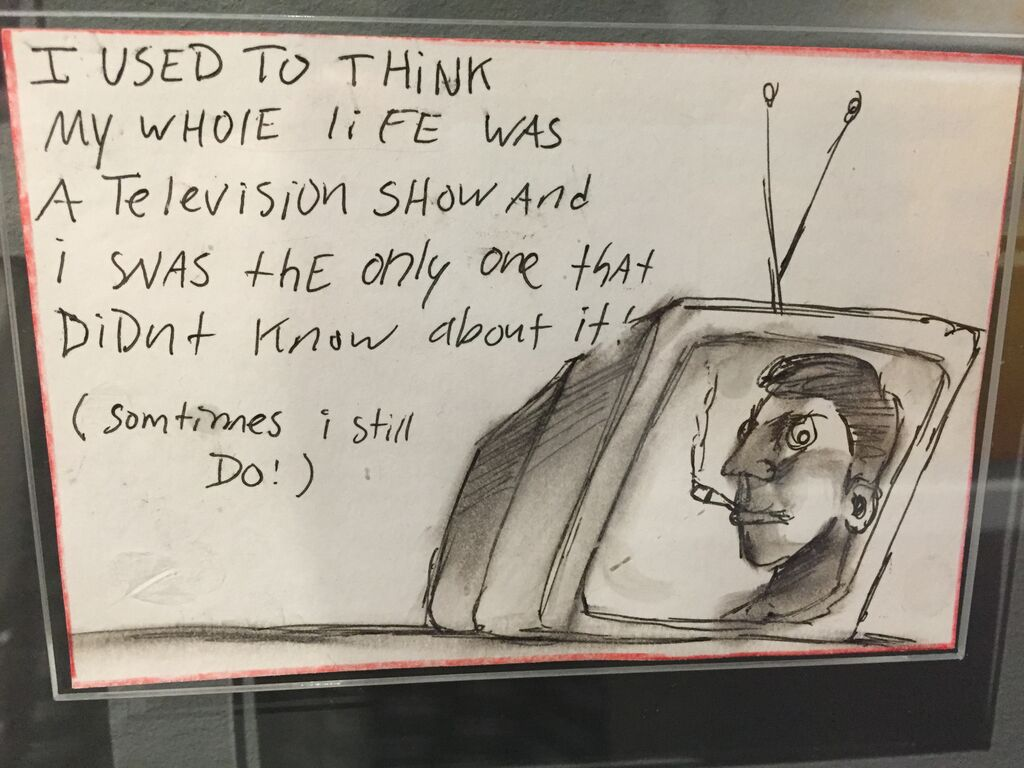 I USED TO THiNK
MY WHOlE liFE WAS
A Television SHOW And
i WAS thE only one thAt
DiDnt Know about it!
(somtimes i still
DO!)